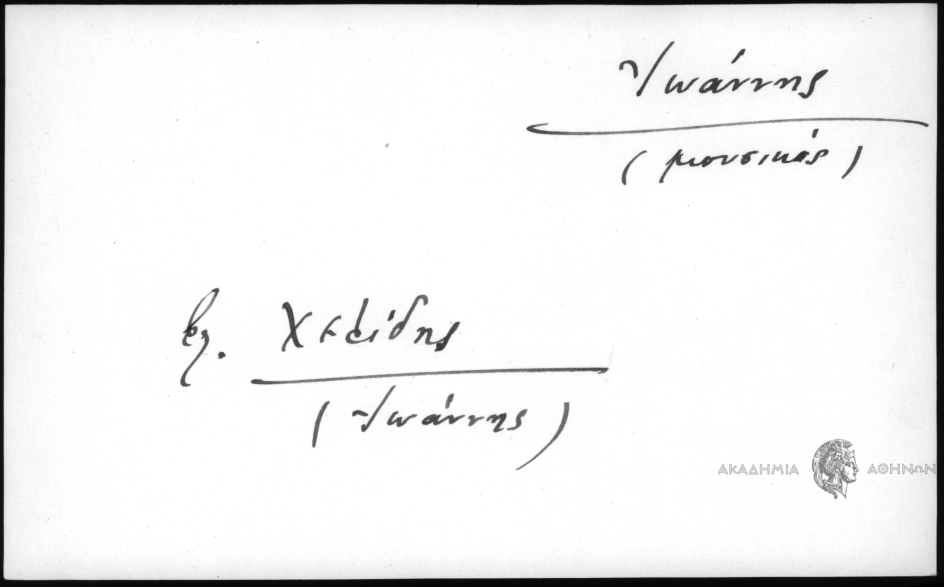 Ἰωάννης
(μουσικός)
βλ.
(Ἰωάννης)
ΑΚΑΔΗΜΙΑ ΑΘΗΝΩΝ